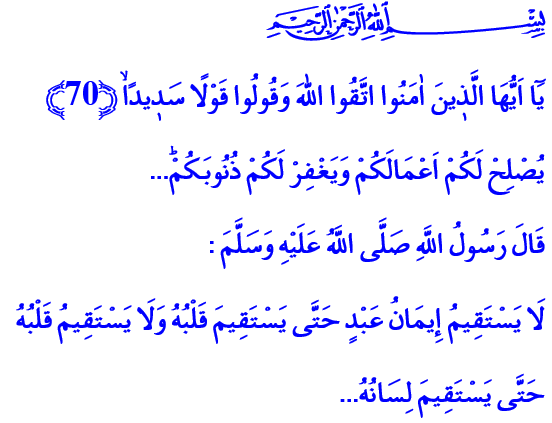 بِسْمِ اللهِ الرَّحْمٰنِ الرَّحِيمِ
يَٓا اَيُّهَا الَّذ۪ينَ اٰمَنُوا اتَّقُوا اللهَ وَقُولُوا قَوْلًا سَد۪يدًاۙ ﴿70﴾
يُصْلِحْ لَكُمْ اَعْمَالَكُمْ وَيَغْفِرْ لَكُمْ ذُنُوبَكُمْۜ...
قَالَ رَسُولُ اللَّهِ صَلَّى اللَّهُ عَلَيْهِ وَسَلَّمَ :
لَا يَسْتَقِيمُ إِيمَانُ عَبْدٍ حَتَّى يَسْتَقِيمَ قَلْبُهُ وَلَا يَسْتَقِيمُ قَلْبُهُ
حَتَّى يَسْتَقِيمَ لِسَانُهُ...